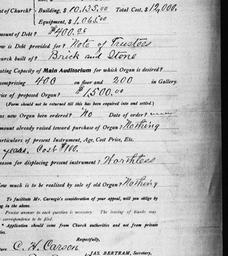 of Church? { Building, $10,135.00 Total Cost, $12,000.
Equipment, $1,065.00
amount of Debt? $400.00
is Debt provided for? Note of Trustees
Church built of? Brick and Stone
Seating Capacity of Main Auditorium for which Organ is desired?
comprising 400 on floor and 200 in Gallery.
Price of proposed Organ? $1,500.00
(Form should not be returned till this has been enquired into and settled.)
new Organ been Ordered? No Date of order?
amount already raised toward purchase of Organ? Nothing
Particulars of present Instrument, Age, Cost Price, Etc.
years, Cost $110.
Reason for displacing present instrument? Worthless
How much is to be realized by sale of old Organ? Nothing
To facilitate Mr. Carnegie's consideration of your appeal, will you oblige by
ing in the above.
Precise answer to each question is necessary. The leaving of blanks may
correspondence to be filed.
Application should come from Church authorities and not from private
Respectfully,
C. H. Carson
JAS. BERTRAM, Secretary,